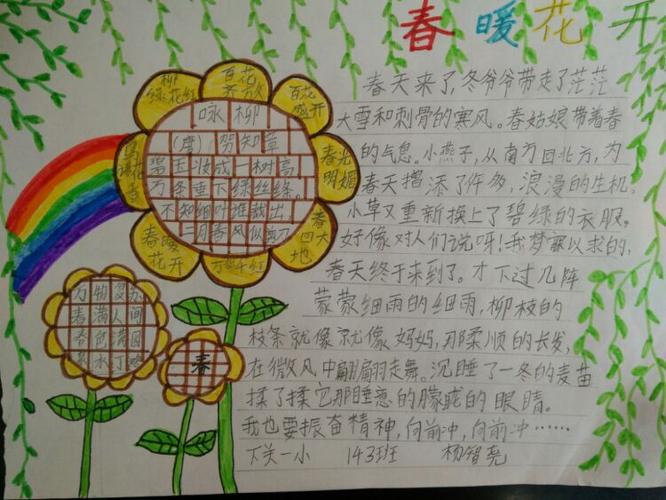 春暖花开
柳绿花红
百花齐放
百花盛开
鸟语花香
春光明媚
春暖花开
万紫千红
春回大地
咏柳
(唐) 贺知章
碧玉妆成一树高
万条垂下绿丝绦
不知细叶谁裁出
二月春风似剪刀
春天来了,冬爷爷带走了茫茫
大雪和刺骨的寒风。春姑娘带着春
的气息。小燕子,从南方回北方,为
春天增添了许多,浪漫的生机。
小草又重新换上了碧绿的衣服。
好像对人们说呀!我梦寐以求的,
春天终于来到了。才下过几阵
蒙蒙细雨的细雨,柳枝的
枝条就像就像妈妈,那柔顺的长发,
在微风中翩翩走舞。沉睡了一冬的麦苗
揉了揉它那睡意的朦胧的眼睛。
我也要振奋精神,向前冲,向前冲……
万物复
春满人间
春色满园
春
下关一小 143班 杨智尧